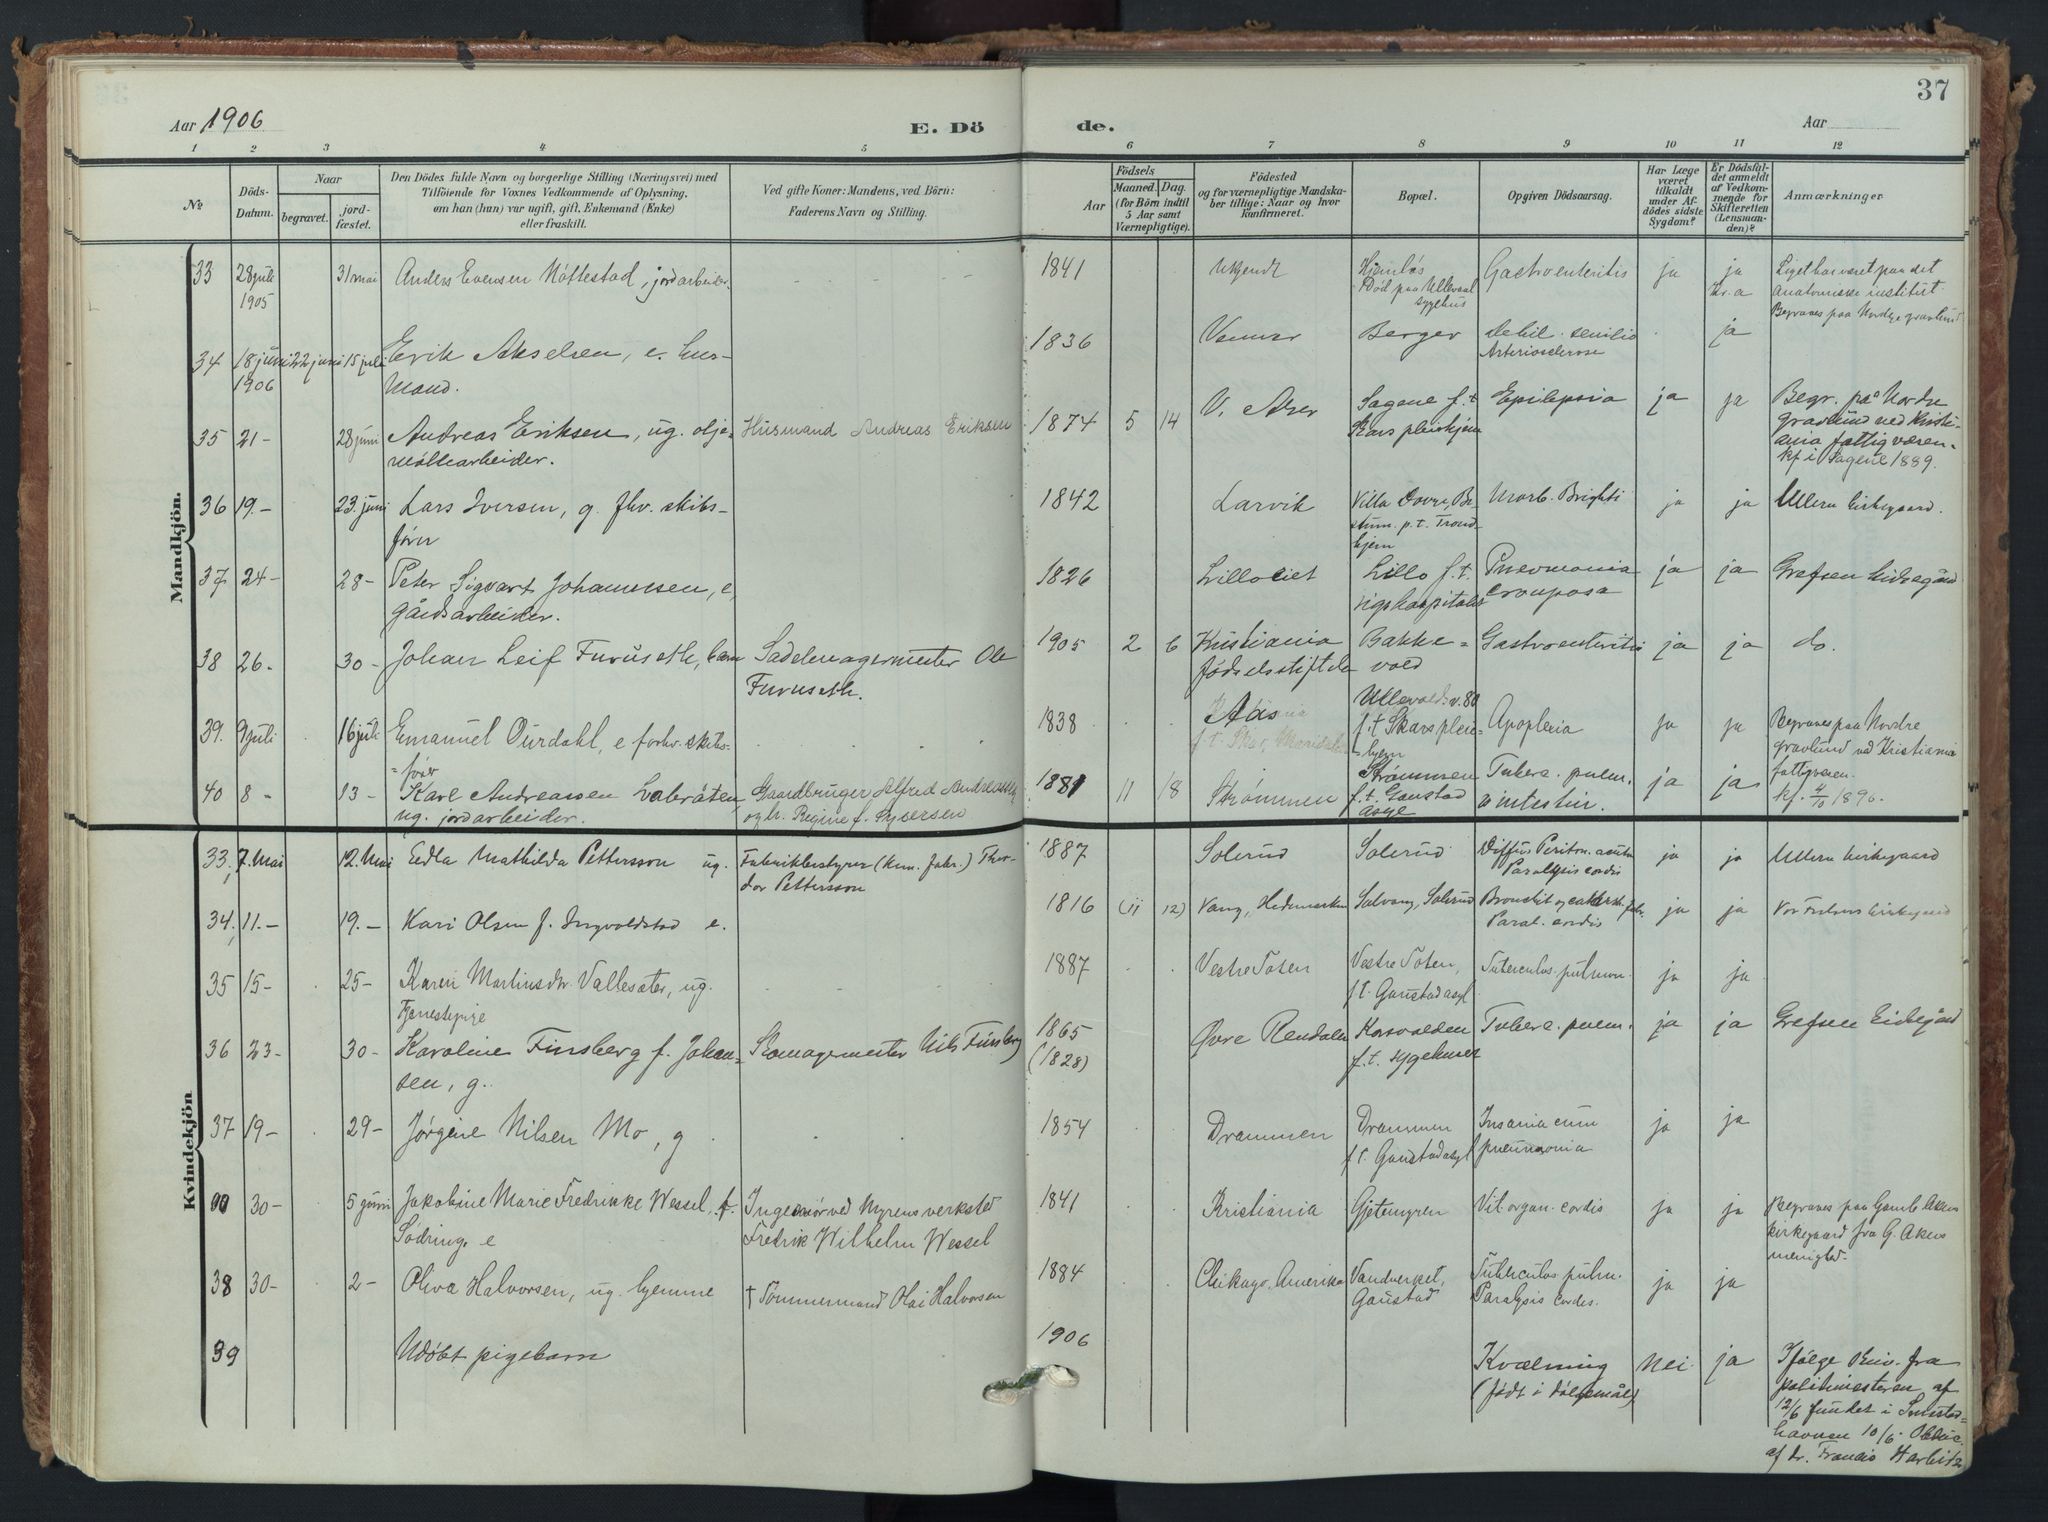 37
Aar 1906
E. Dö
de.
Aar
1 2 3 4 5 6 7 8 9 10 11 12
No
Döds-
Datum.
Naar
begravet.
jord-
fæstet.
Den Dödes fulde Navn og borgerlige Stilling (Næringsvei) med
Tilföiende for Voxnes Vedkommende af Oplysning,
om han (hun) var ugift, gift, Enkemand (Enke)
eller fraskilt.
Ved gifte Koner: Mandens, ved Börn:
Faderens Navn og Stilling.
Födsels
Aar
Maaned. Dag.
(for Börn indtil
5 Aar samt
Værnepligtige).
Födested
og for værnepligtige Mandska-
ber tillige: Naar og hvor
konfirmeret.
Bopæl.
Opgiven Dödsaarsag.
Har Læge
været
tilkaldt
under Af-
dödes sidste
Sygdom?
Er Dödsfal-
det anmeldt
af Vedkom-
mende for
Skifteretten
(Lensman-
den)?
Anmærkninger
Mandkjön.
33 28 juli 1905 31 mai Anders Evensen Nöttestad, jordarbeider. 1841 Ukjendt Hjemløs
Død paa Ullevaal
sygehus
Gastroenteritis ja ja
Kr.a
Liget har været paa det
anatomiske institut.
Begraves paa Nordre gravlund
34 18 juni 1906 22 juni 15 juli Erik Akselsen, e. hus-
mand.
1836 Berger Debil. senilis
Arteriosclerose
ja
35 21- 28 juni Andreas Eriksen, ug. olje-
møllearbeider.
Husmand Andreas Eriksen 1874 5 14 V. Aker Sagene f.t.
Skars pleiehjem
Epilepsia ja ja Begr. på Nordre
gravlund ved Kristi-
ania fattigvæsen.
kf i Sagene 1889.
36 19.- 23. juni Lars Iversen, g. fhv. skibs-
fører
1842 Larvik Villa Dovre, Be-
stum. p.t. Trond-
hjem
Morb. Brighti ja ja Ullern kirkegaard.
37 24- 28- Peter Sigvart Johannesen, e,
gårdsarbeider.
1826 Lillo f.t.
rigshospitalet
Pneumonia
crouposa
ja ja
38 26- 30- Johan Leif Furuseth, barn Sadelmagermester Ole
Furuseth.
1905 2 6 Kristiania
fødselsstiftelse
Bakke-
vold
Gastroenteritis ja ja do.
39. 9 juli 16 juli Emanuel Ourdahl, e forhv. skibs-
=fører
1838 Aas
f.t. Skar, Maridalen
Ullevoldsv. 80
f.t. Skars pleie-
hjem
Apoplexia ja ja Begraves paa Nordre
gravlund ved Kristiania
fattigvæsen.
40 8- 13- Karl Andreassen
ug. jordarbeider.
Gaardbruger Alfred Andreassen
og h. Regine f. Syversen
1881 11 18 Strømmen Strømmen
f.t. Gaustad
asyl
Tuberc. pulm.
o intestin.
ja ja kf. 4/10 1896.
Kvindekjön
33, 7. Mai 12. Mai Edla Mathilda Pettersson ug. Fabrikbestyrer (kem. fabr.) Theo-
dor Pettersson
1887 Solerud Solerud Diffus Periton. acuta
Paralysis cordis
ja ja Ullern kirkegaard
34, 11.- 19.- Kari Olsen f. Ingvoldstad e. 1816 (11 12) Vang, Hedemarken Solvang, Solerud
Paral. cordis
ja ja Vor Frelsers kirkegaard
35 15- 25- Karen Martinsdtr. Vallesæter, ug.
Tjenestepige
1887 Vestre Toten Vestre Toten,
f.t. Gaustad asyl
Tuberculos. pulmon. ja ja
36 23- 30- Karoline Finsberg f. Johan-
sen, g.
Skomagermester Nils Finsberg 1865
(1828)
Øvre Rendalen Korsvolden
f.t. sygehuset
Tuberc. pulm. ja ja Grefsen
37 19- 29- Jørgine Nilsen Mo, g 1854 Drammen Drammen
f.t. Gaustad asyl
Insania cum
pneumonia
ja ja
30- 5 juni Jakobine Marie Fredrikke Wessel, f.
Södring, e
Ingeniør ved Myrens verksted
Fredrik Wilhelm Wessel
1841 Kristiania Gjetemyren Vit. organ. cordis ja ja Begraves paa Gamle Akers
kirkegaard fra G. Akers
menighed.
38 30- 2- Oliva Halvorsen, ug. hjemme † Tömmermand Olai Halvorsen 1884 Chikago, Amerika Vandverket,
Gaustad
Tuberculos. pulm.
Paralysis cordis.
ja ja
39 Udøbt pigebarn 1906 Kvælning
(født i dølgsmål)
nei. ja Ifölge skriv. fra
politimesteren af
12/6 fundet i
havnen 10/6. Obduc.
af dr. Francis Harbitz